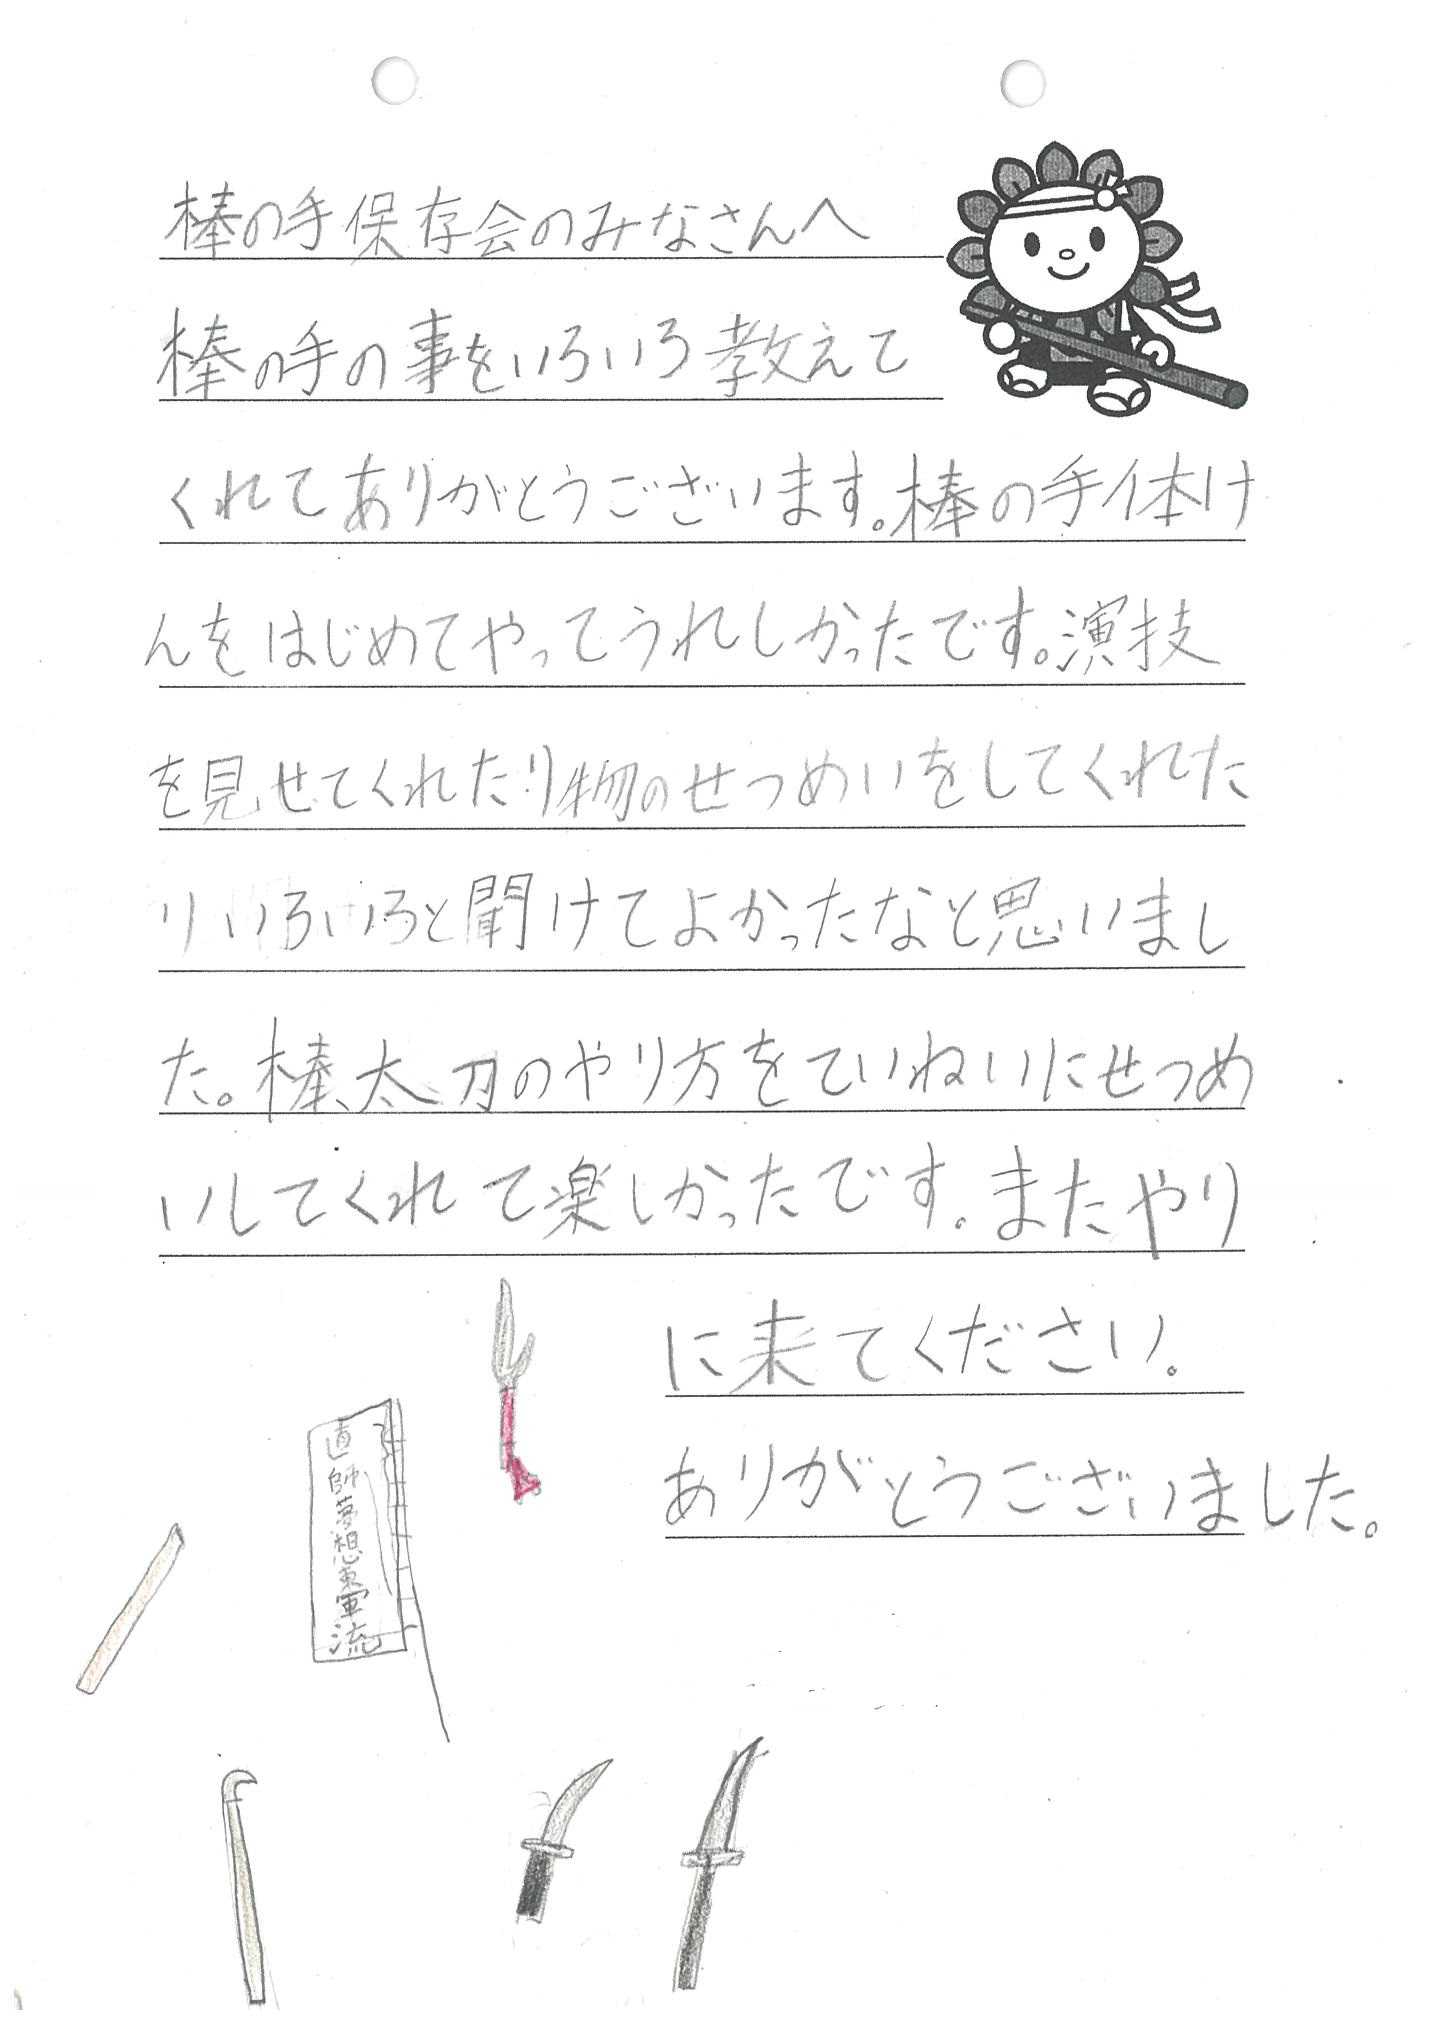 棒の手保存会のみなさんへ
棒の手の事をいろいろ教えて
くれてありがとうございます。棒の手体け
んをはじめてやってうれしかったです。演技
を見せてくれたり物のせつめいをしてくれた
りいろいろと聞けてよかったなと思いまし
た。棒、太刀のやり方をていねいにせつめ
いしてくれて楽しかったです。またやり
に来てください。
ありがとうございました。
直師夢想東軍流